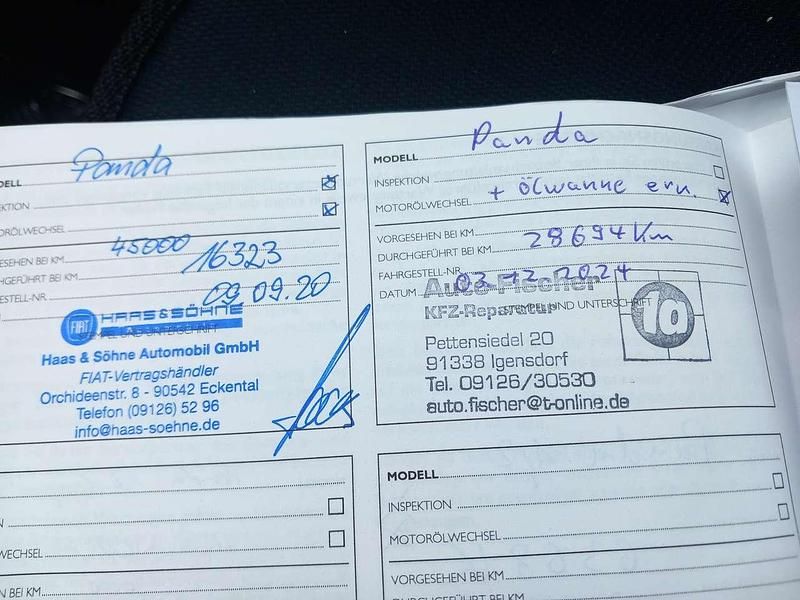 Panda
DELL
KTION
ORÖLWECHSEL
ESEHEN BEI KM 45000
HGEFÜHRT BEI KM 16323
ESTELL-NR.
09.09.20
FIAT HAAS & SÖHNE
Haas & Söhne Automobil GmbH
FIAT-Vertragshändler
Orchideenstr. 8 - 90542 Eckental
Telefon (09126) 52 96
info@haas-soehne.de
Panda
MODELL
INSPEKTION
MOTORÖLWECHSEL + Ölwanne ern.
VORGESEHEN BEI KM
DURCHGEFÜHRT BEI KM 28694 Km
FAHRGESTELL-NR.
DATUM 03.12.2024
STEMPEL UND UNTERSCHRIFT
Auto-Fischer
KFZ-Reparatur
1a
Pettensiedel 20
91338 Igensdorf
Tel. 09126/30530
auto.fischer@t-online.de
N
WECHSEL
N BEI KM
MODELL
INSPEKTION
MOTORÖLWECHSEL
VORGESEHEN BEI KM
DURCHGEFÜHRT BEI KM